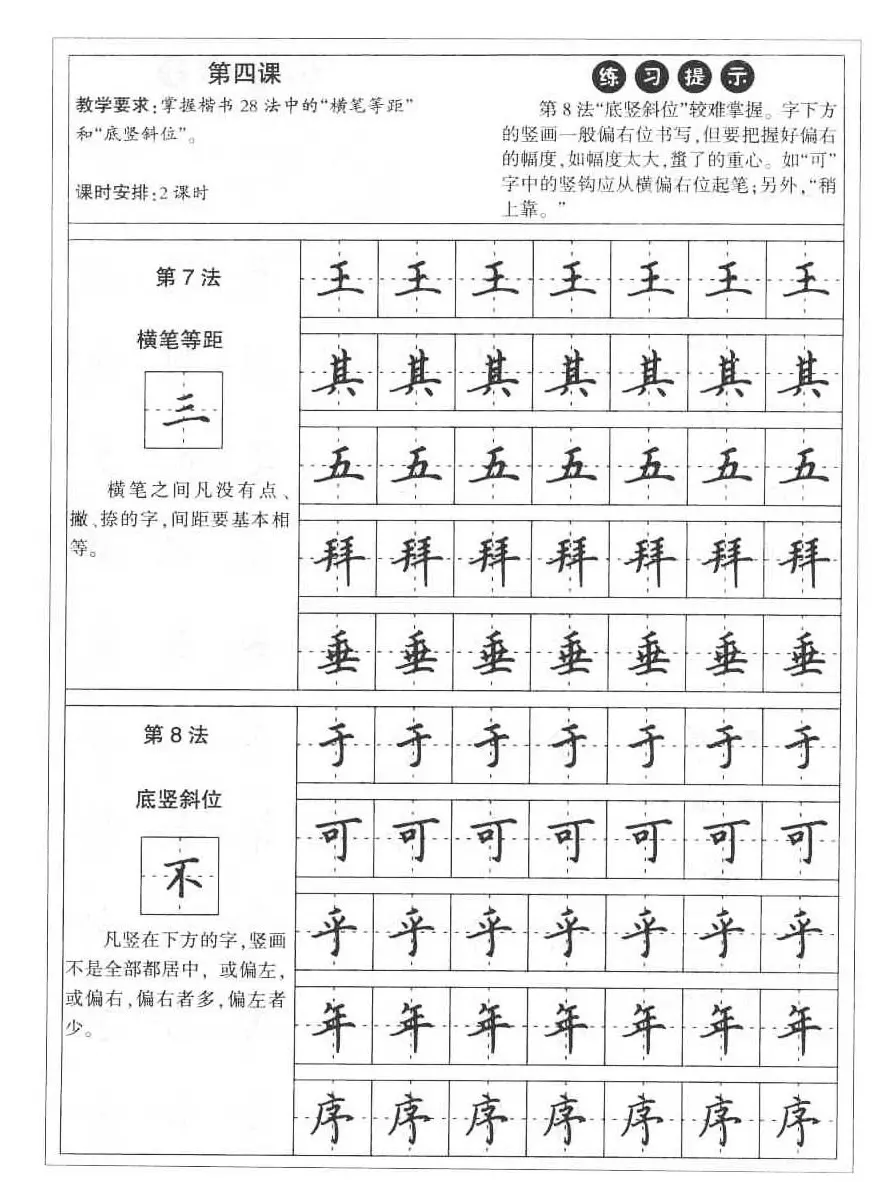 第四课
教学要求:掌握楷书28法中的“横笔等距”
和“底竖斜位”。
课时安排:2课时
练习提示
第8法“底竖斜位”较难掌握。字下方
的竖画一般偏右位书写,但要把握好偏右
的幅度,如幅度太大,蜇了的重心。如“可”
字中的竖钩应从横偏右位起笔;另外,“稍
上靠。”
第7法
横笔等距
三
横笔之间凡没有点、
撇、捺的字,间距要基本相
等。
王王王王王王王
其其其其其其其
五五五五五五五
拜拜拜拜拜拜拜
垂垂垂垂垂垂垂
第8法
底竖斜位
不
凡竖在下方的字,竖画
不是全部都居中,或偏左,
或偏右,偏右者多,偏左者
少。
于于于于于于于
可可可可可可可
乎乎乎乎乎乎乎
年年年年年年年
序序序序序序序